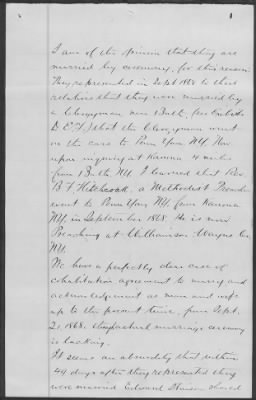 I am of the opinion that they are
married by ceremony, for this reason
They represented in Sept 1868 to their
relatives that they were married by
a Clergyman near Bath, (see Exhibits
D. E. F.) that the Clergyman went
on the cars to Penn Yan N.Y. Now
upon inquiry at Kanona 4 miles
from Bath N.Y. I learned that Rev.
B. F. Hitchcock, a Methodist Preacher
went to Penn Yan N.Y. from Kanona
N.Y. in September 1868. He is now
Preaching at Williamson Wayne Co.
N.Y.
We have a perfectly clear case of
cohabitation agreement to marry and
acknowledgement as man and wife
up to the present time, from Sept.
21, 1868. Any actual marriage ceremony
is lacking.
It seems an absurdity that within
49 days after they represented they
were married Edward should